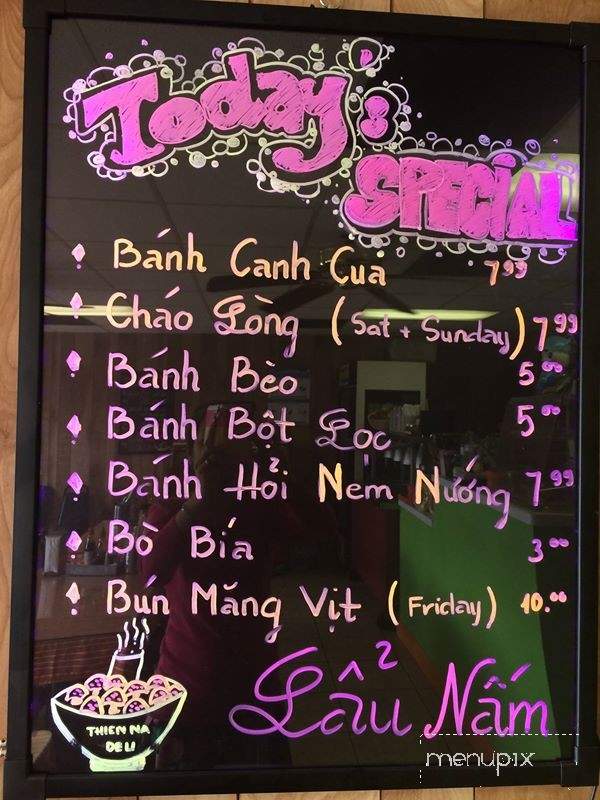 Today:
SPECIAL
Bánh Canh Cua 7.99
Cháo Lòng (Sat + Sunday) 7.99
Bánh Bèo 5.00
Bánh Bột Lọc 5.00
Bánh Hỏi Nem Nướng 7.99
Bò Bía 3.00
Bún Măng Vịt (Friday) 10.00
Lẩu Nấm
THIEN NA
DELI
menupix